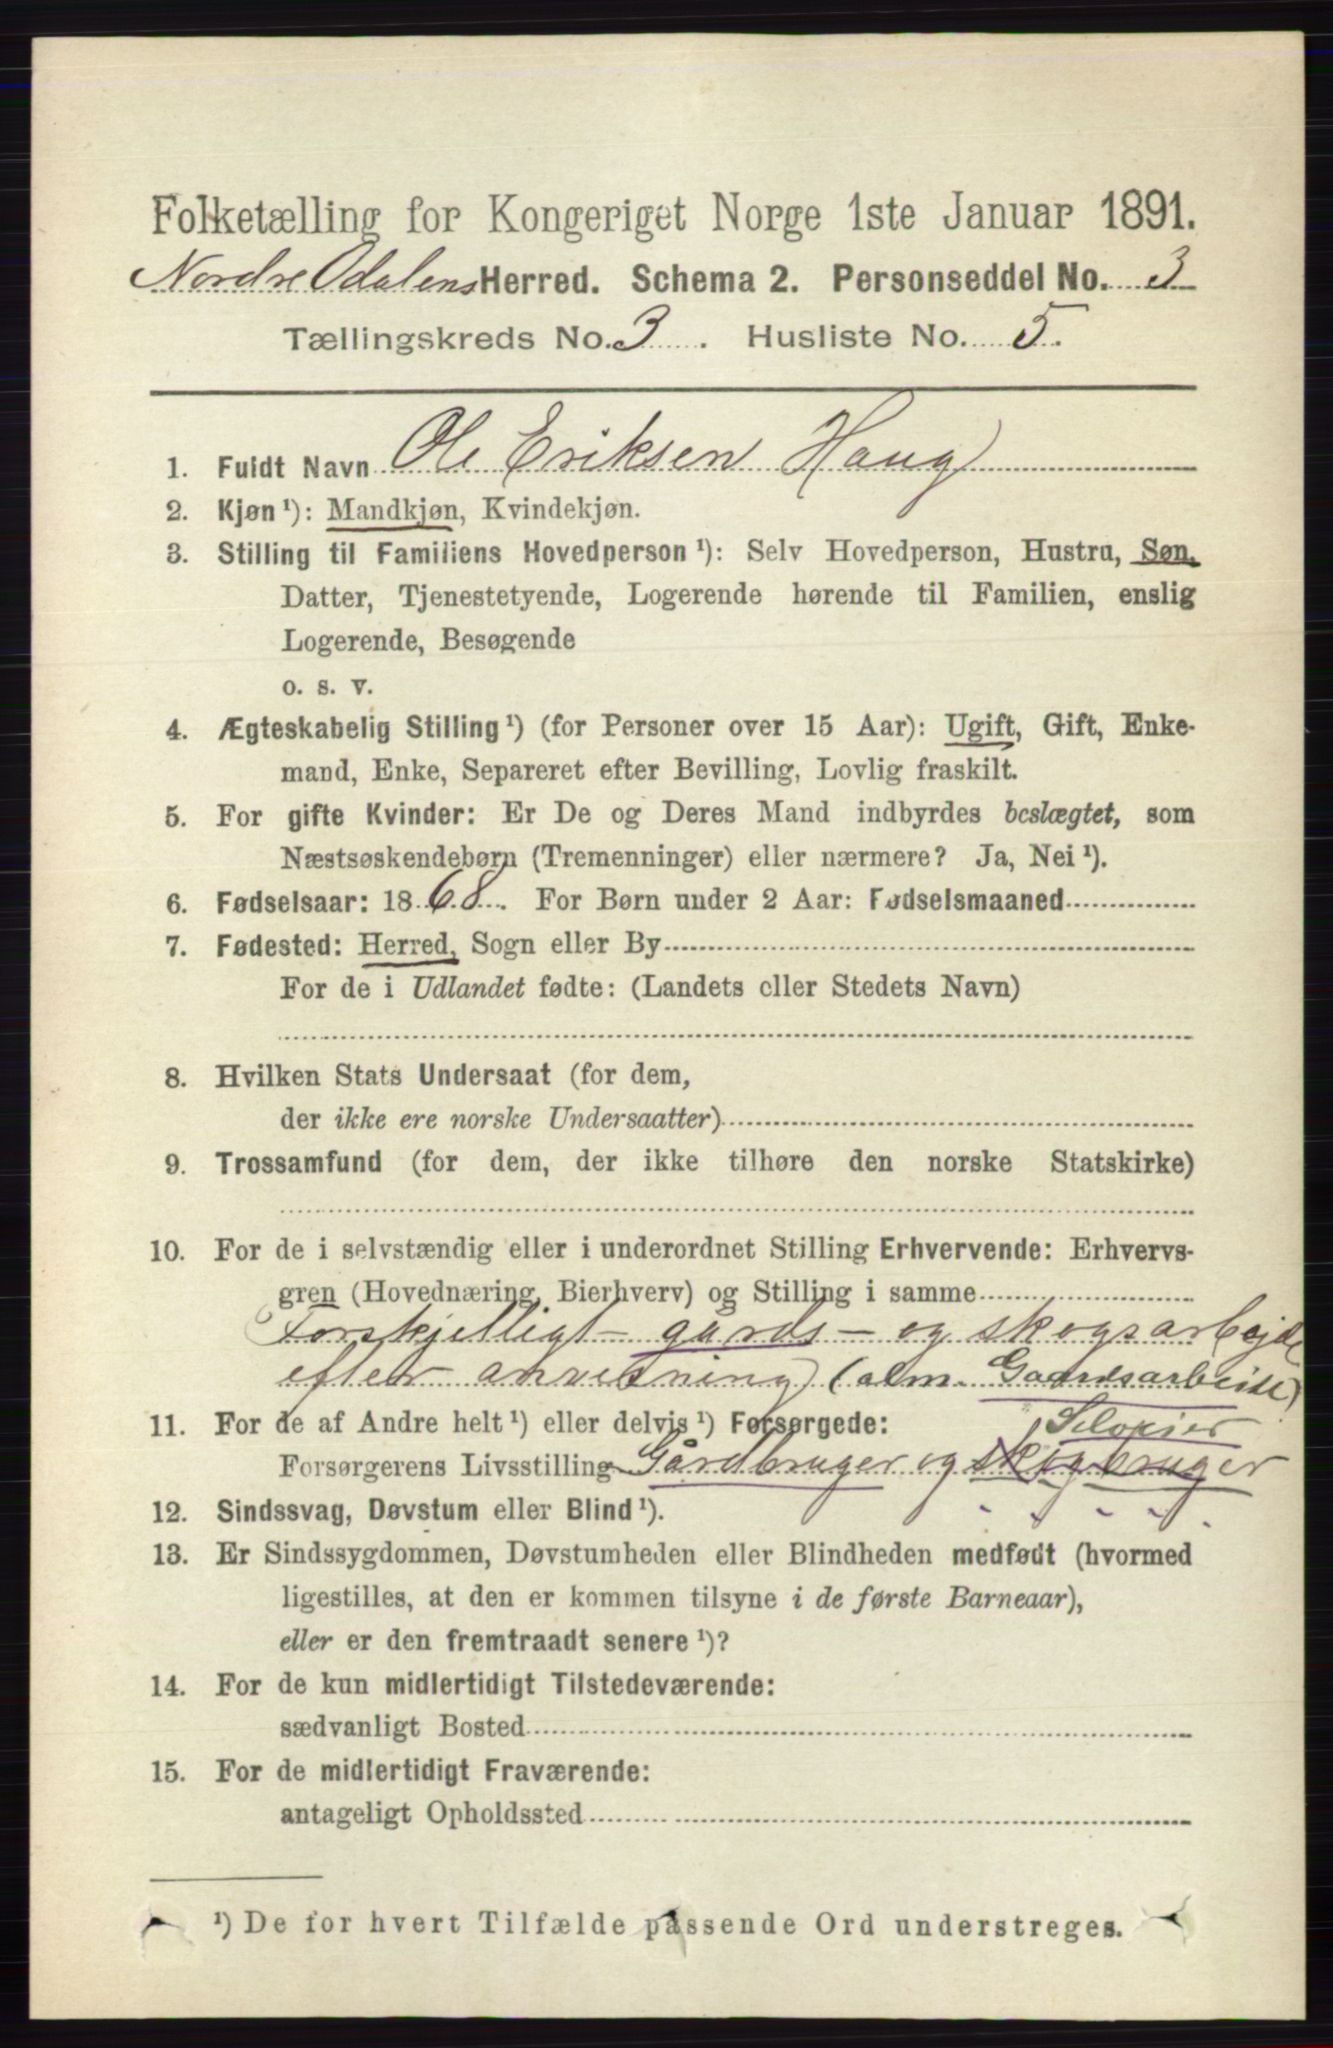 Folketælling for Kongeriget Norge 1ste Januar 1891.
Nordre Odalens Herred. Schema 2. Personseddel No. 3
Tællingskreds No. 3. Husliste No. 5.
1. Fuldt Navn Ole Eriksen Haug
2. Kjøn ¹): Mandkjøn, Kvindekjøn.
3. Stilling til Familiens Hovedperson ¹): Selv Hovedperson, Hustru, Søn,
Datter, Tjenestetyende, Logerende hørende til Familien, enslig
Logerende, Besøgende
o. s. v.
4. Ægteskabelig Stilling ¹) (for Personer over 15 Aar): Ugift, Gift, Enke-
mand, Enke, Separeret efter Bevilling, Lovlig fraskilt.
5. For gifte Kvinder: Er De og Deres Mand indbyrdes beslægtet, som
Næstsøskendebørn (Tremenninger) eller nærmere? Ja, Nei ¹).
6. Fødselsaar: 1868. For Børn under 2 Aar: Fødselsmaaned
7. Fødested: Herred, Sogn eller By
For de i Udlandet fødte: (Landets eller Stedets Navn)
8. Hvilken Stats Undersaat (for dem,
der ikke ere norske Undersaatter)
9. Trossamfund (for dem, der ikke tilhøre den norske Statskirke)
10. For de i selvstændig eller i underordnet Stilling Erhvervende: Erhvervs-
gren (Hovednæring, Bierhverv) og Stilling i samme
Forskjelligt gårds- og skogsarbejde
efter anvisning (alm. Gaardsarbeide)
11. For de af Andre helt ¹) eller delvis ¹) Forsørgede:
Forsørgerens Livsstilling Gårdbruger og skogbruger
12. Sindssvag, Døvstum eller Blind ¹).
13. Er Sindssygdommen, Døvstumheden eller Blindheden medfødt (hvormed
ligestilles, at den er kommen tilsyne i de første Barneaar),
eller er den fremtraadt senere ¹)?
14. For de kun midlertidigt Tilstedeværende:
sædvanligt Bosted
15. For de midlertidigt Fraværende:
antageligt Opholdssted
¹) De for hvert Tilfælde passende Ord understreges.